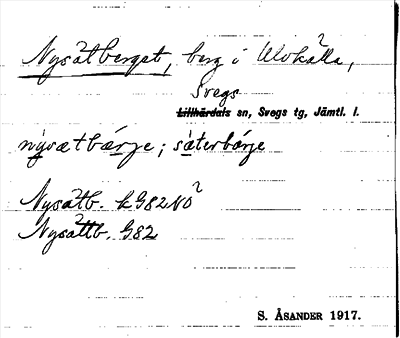 Nysätberget, berg i Ulvkälla,
Svegs
Lillhärdals sn, Svegs tg, Jämtl. l.
nýsætbár̥je; sàterbårje
Nysätb. k G82NO?
Nysättb. G82
S. ÅSANDER 1917.